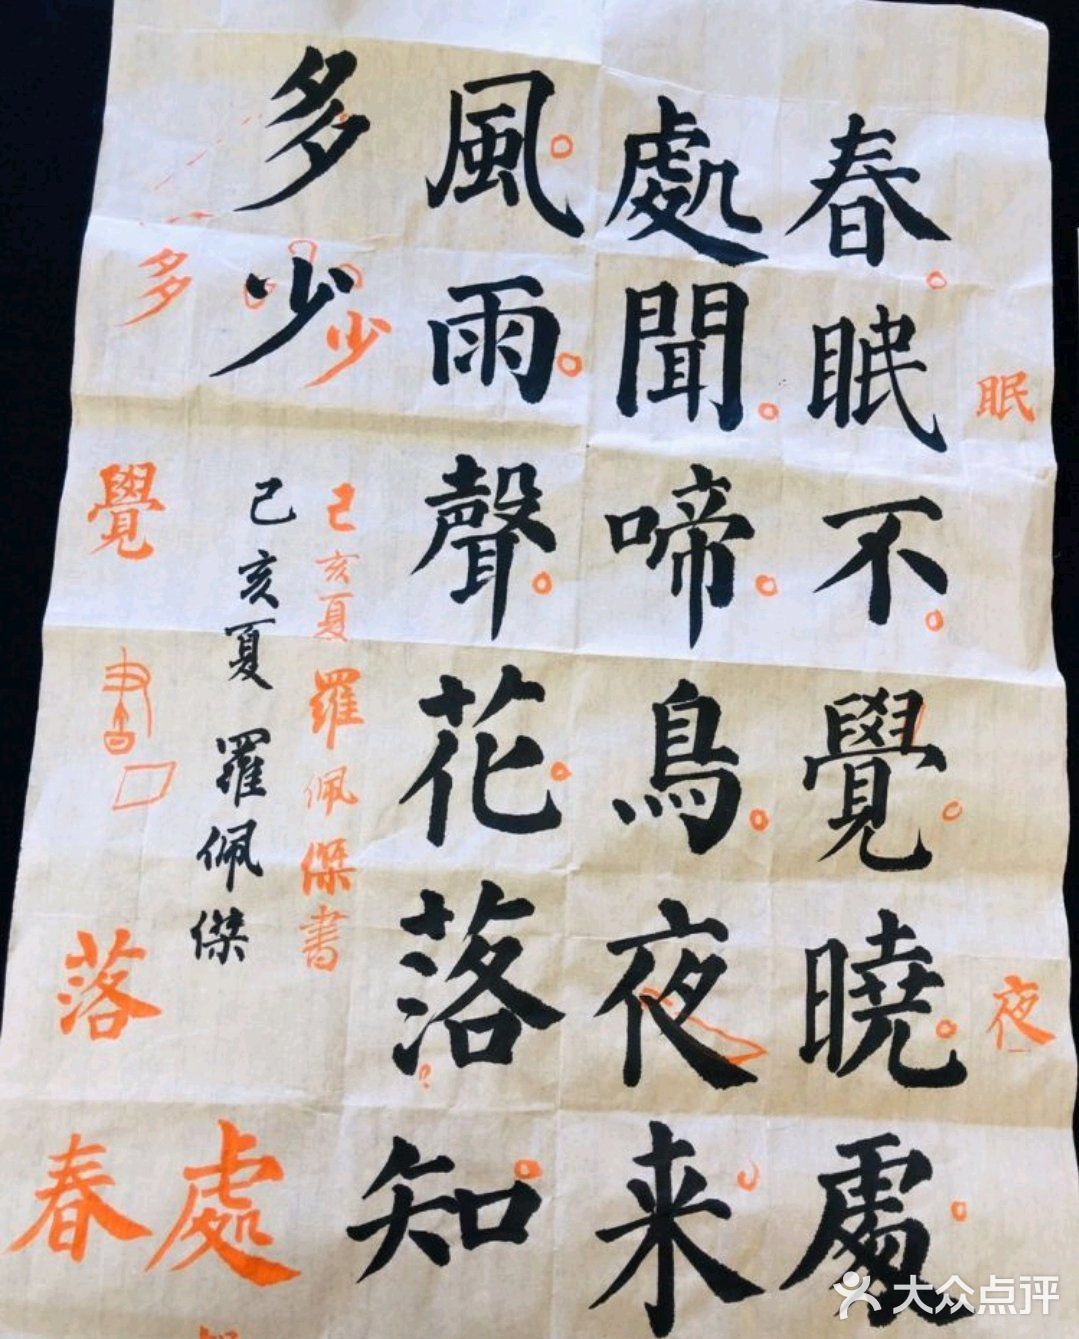 春眠不覺曉處
處聞啼鳥夜来
風雨聲花落知
多少
己亥夏羅佩傑
己亥夏羅佩傑書
眠
夜
少
多
覺
書
落
處
春
大众点评